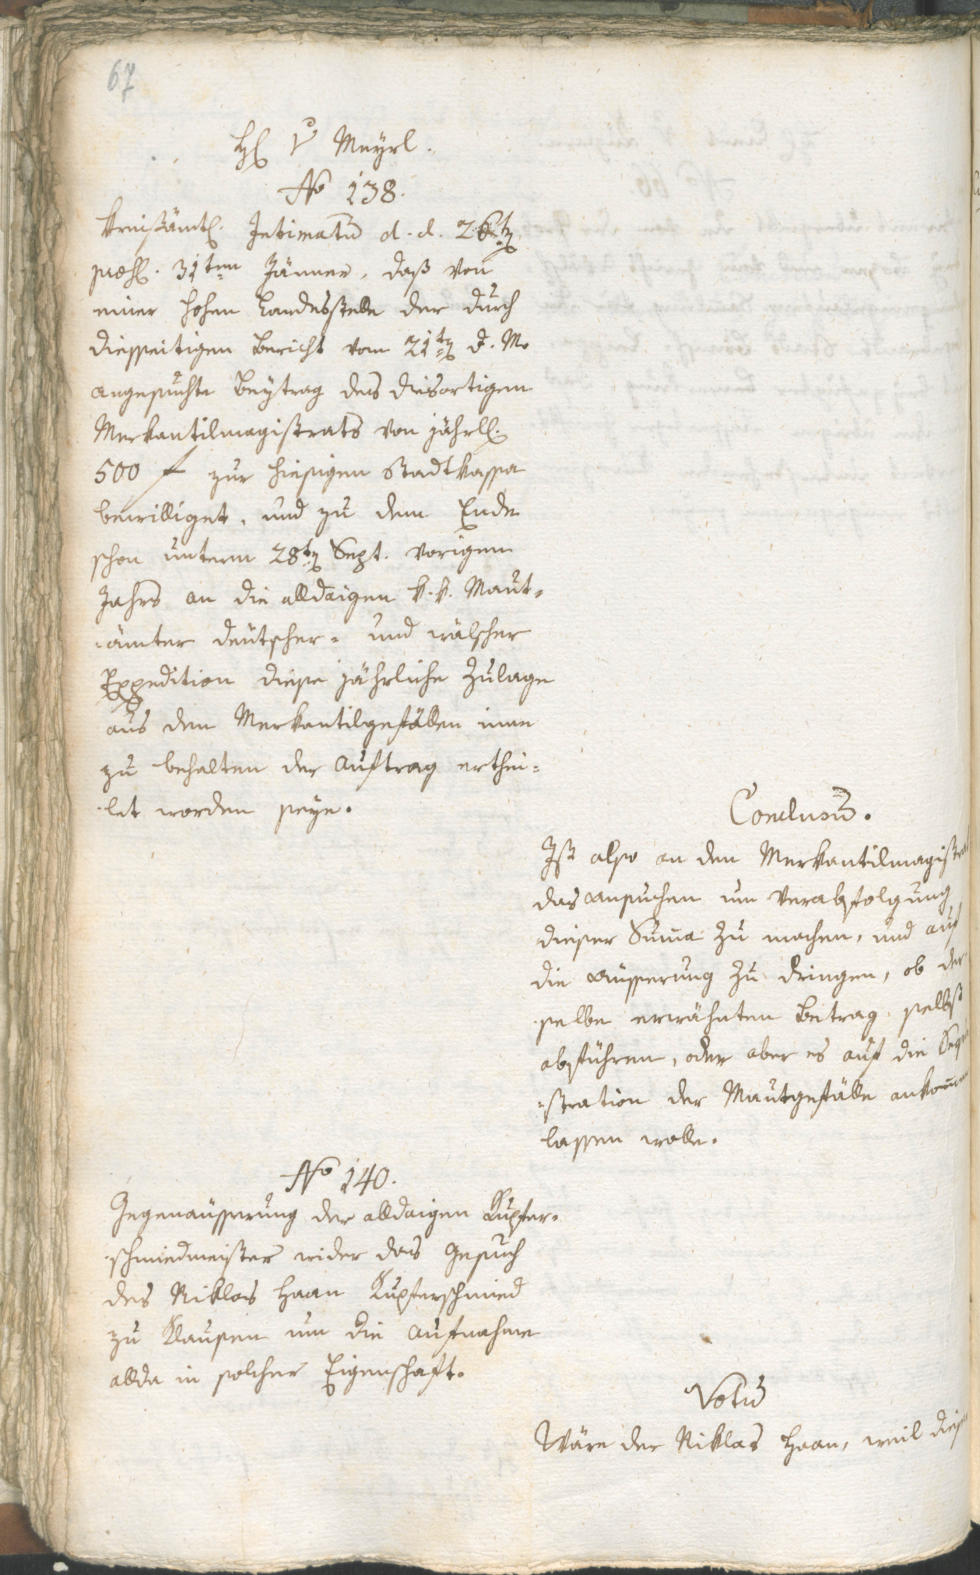 67
H. v Meyrl.
No 138.
Kreisämtl. Intimatum d. d. 26ten
præs. 31ten Jänner, daß von
einer hohen Landesstelle der durch
diesseitigen Bericht vom 21ten d. M.
angesuchte Beytrag des diesortigen
Merkantilmagistrats von jährl.
500 f zur hiesigen Stadtkassa
bewilliget, und zu dem Ende
schon unterm 28ten Sept. vorigen
Jahrs an die alldaigen k. k. Maut-
ämter deutscher- und wälscher
Expedition diese jährliche Zulage
aus den Merkantilgefällen inne
zu behalten der Auftrag erthei-
let worden seye.
Conclusum.
Ist also an den Merkantilmagistrat
das Ansuchen um Verabfolgung
dieser Summa zu machen, und auf
die Äusserung zu dringen, ob der
selbe erwähnten Betrag selbst
abführen, oder aber es auf die Seque
stration der Mautgefälle ankommen
lassen wolle.
No 140.
Gegenäusserung der alldaigen Kupfer-
schmiedmeister wider das Gesuch
des Niklas Haan Kupferschmied
zu Klausen um die Aufnahme
allda in solcher Eigenschaft.
Votum
Wäre der Niklas Haan, weil diese